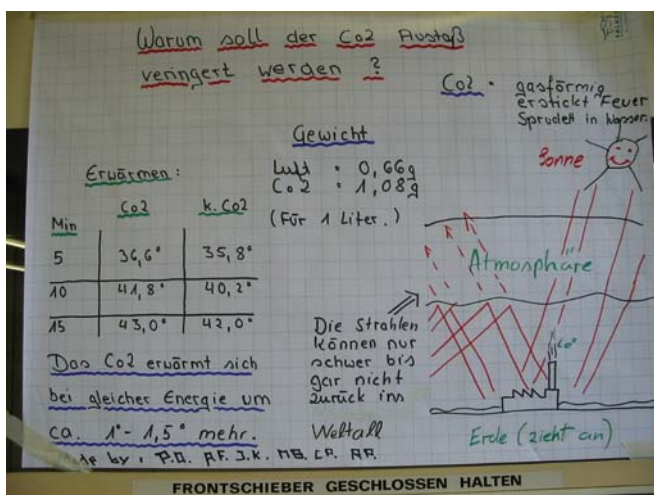 Warum soll der Co2 Austaß
veringert werden ?
Co2 : gasförmig
erstickt Feuer
Sprudelt in Wasser.
Gewicht
Luft : 0,66g
Co2 : 1,08g
(Für 1 Liter.)
Erwärmen:
Min Co2 k. Co2
5 36,6° 35,8°
10 41,8° 40,2°
15 43,0° 42,0°
Das Co2 erwärmt sich
bei gleicher Energie um
ca. 1°- 1,5° mehr.
Sonne
Atmosphäre
Die Strahlen
können nur
schwer bis
gar nicht
zurück ins
Weltall
Co²
Erde (zieht an)
Made by : P.O. R.F. J.K. MB. LR. AR.
FRONTSCHIEBER GESCHLOSSEN HALTEN